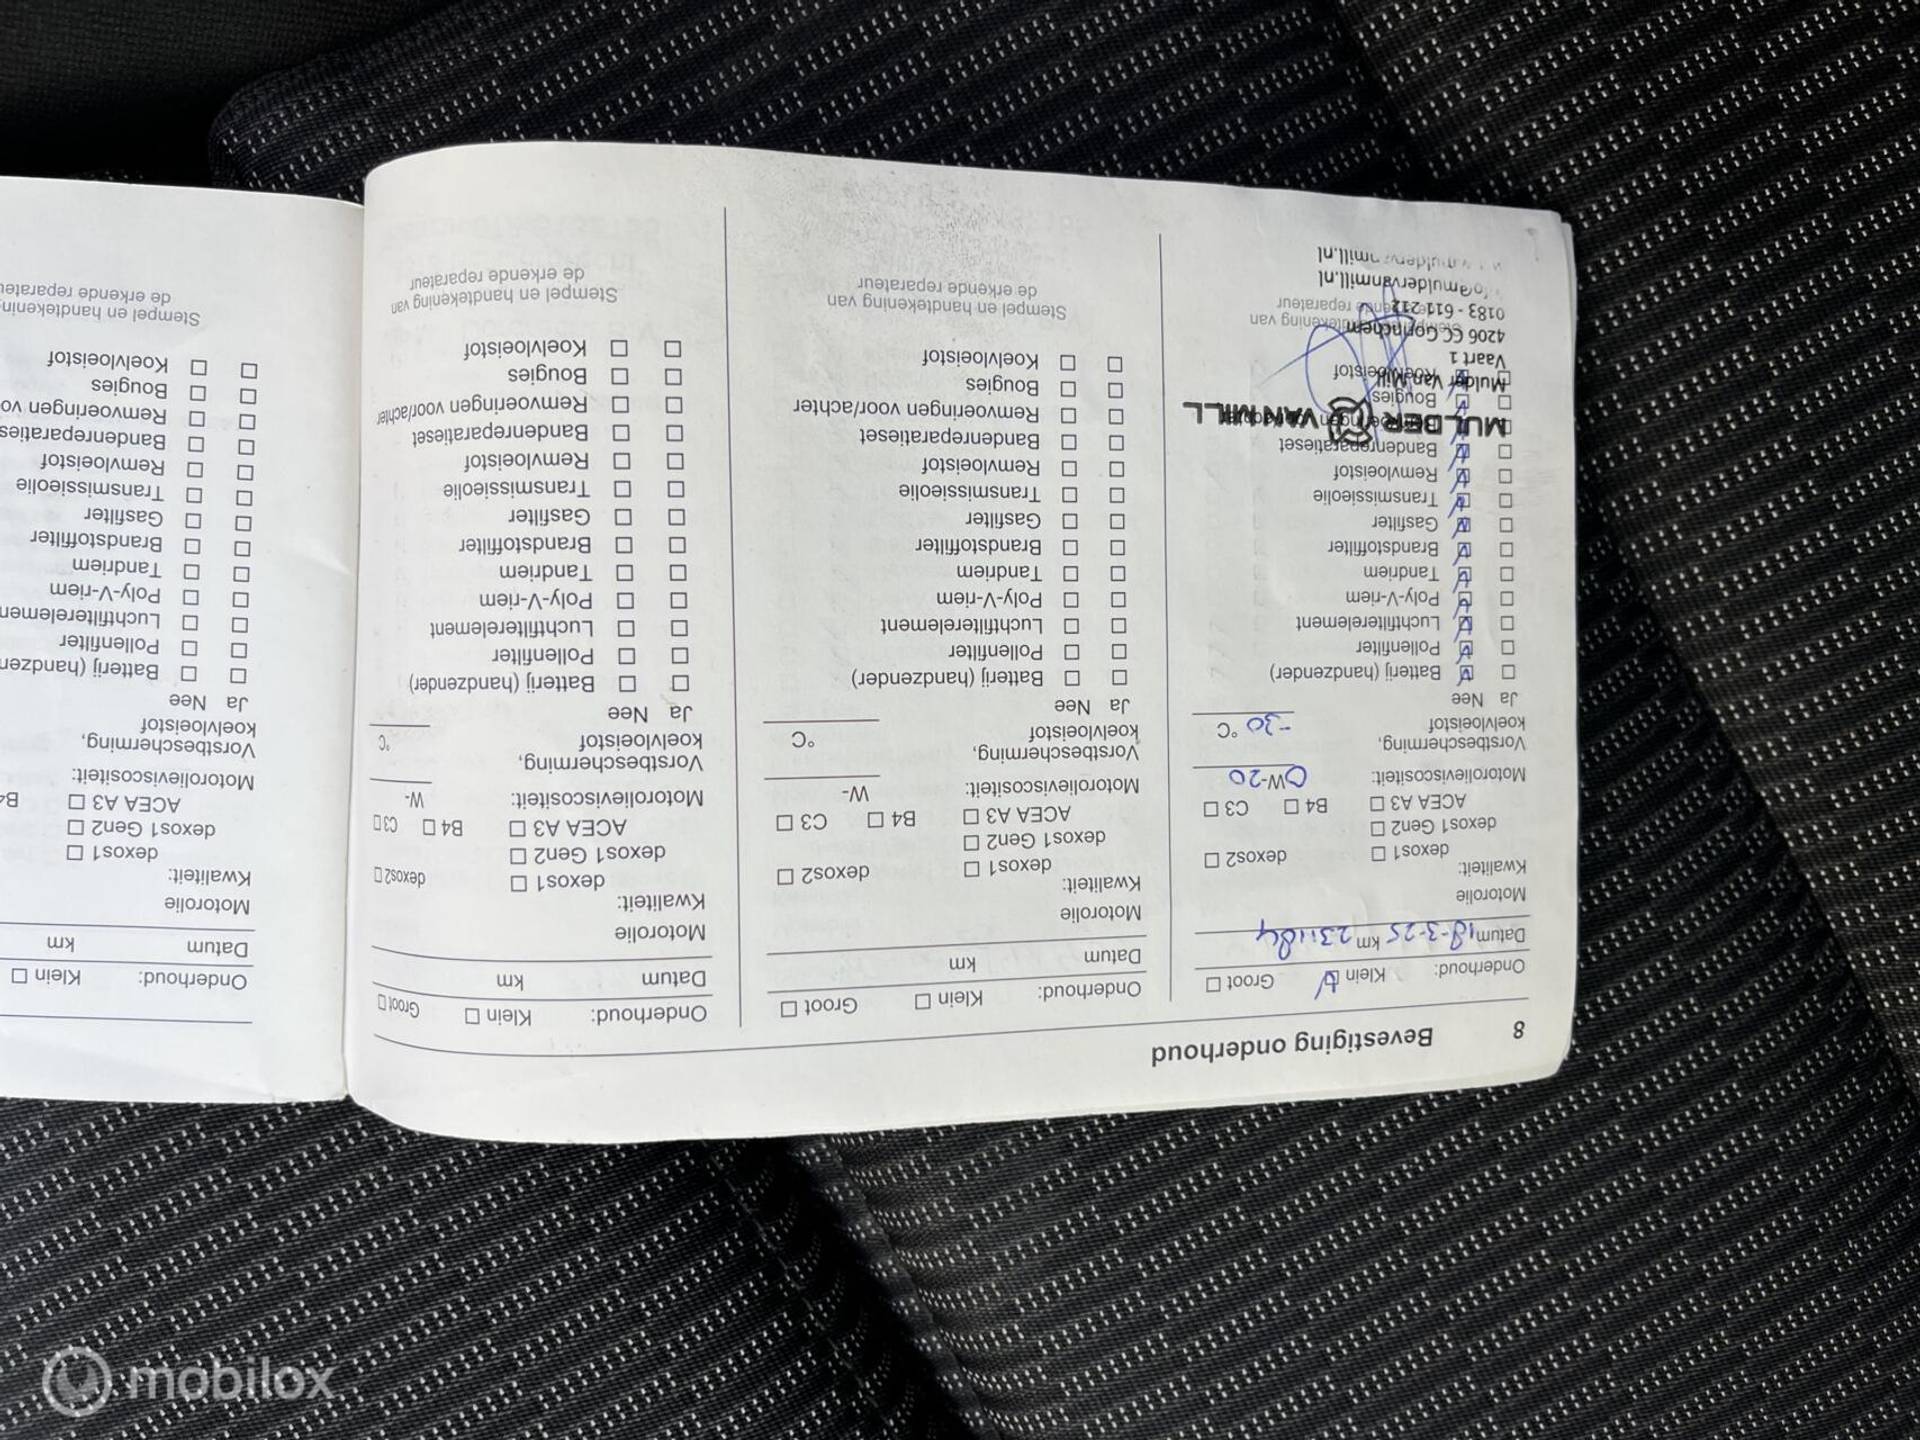 8 Bevestiging onderhoud
Onderhoud: Klein Groot
Datum 18-3-25 km 231184
Motorolie
Kwaliteit:
dexos1 dexos2
dexos1 Gen2
ACEA A3 B4 C3
Motorolieviscositeit: 0W-20
Vorstbescherming,
koelvloeistof -30 °C
Ja Nee
Batterij (handzender)
Pollenfilter
Luchtfilterelement
Poly-V-riem
Tandriem
Brandstoffilter
Gasfilter
Transmissieolie
Remvloeistof
Bandenreparatieset
Bougies
Koelvloeistof
MULDER VAN MILL
Mulder Van Mill
Vaart 1
4206 CC Gorinchem
0183 - 611 212
info@muldervanmill.nl
muldervanmill.nl
Stempel en handtekening van
de erkende reparateur
Onderhoud: Klein Groot
Datum km
Motorolie
Kwaliteit:
dexos1 dexos2
dexos1 Gen2
ACEA A3 B4 C3
Motorolieviscositeit: W-
Vorstbescherming,
koelvloeistof °C
Ja Nee
Batterij (handzender)
Pollenfilter
Luchtfilterelement
Poly-V-riem
Tandriem
Brandstoffilter
Gasfilter
Transmissieolie
Remvloeistof
Bandenreparatieset
Remvoeringen voor/achter
Bougies
Koelvloeistof
Stempel en handtekening van
de erkende reparateur
Onderhoud: Klein Groot
Datum km
Motorolie
Kwaliteit:
dexos1 dexos2
dexos1 Gen2
ACEA A3 B4 C3
Motorolieviscositeit: W-
Vorstbescherming,
koelvloeistof °C
Ja Nee
Batterij (handzender)
Pollenfilter
Luchtfilterelement
Poly-V-riem
Tandriem
Brandstoffilter
Gasfilter
Transmissieolie
Remvloeistof
Bandenreparatieset
Remvoeringen voor/achter
Bougies
Koelvloeistof
Stempel en handtekening van
de erkende reparateur
Onderhoud: Klein
Datum km
Motorolie
Kwaliteit:
dexos1
dexos1 Gen2
ACEA A3 B4
Motorolieviscositeit:
Vorstbescherming,
koelvloeistof
Ja Nee
Batterij (handzen
Pollenfilter
Luchtfilterelemen
Poly-V-riem
Tandriem
Brandstoffilter
Gasfilter
Transmissieolie
Remvloeistof
Bandenreparaties
Remvoeringen vo
Bougies
Koelvloeistof
Stempel en handtekenin
de erkende reparateu
mobilox